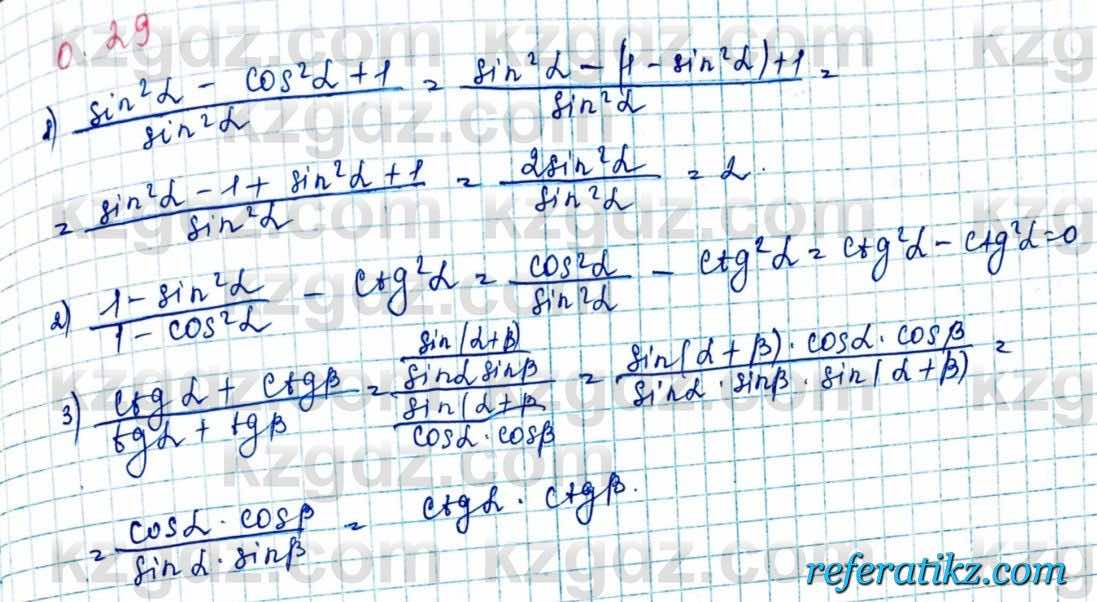 0.29
1) (sin²α - cos²α + 1)/(sin²α) = (sin²α - (1 - sin²α) + 1)/(sin²α) =
= (sin²α - 1 + sin²α + 1)/(sin²α) = (2sin²α)/(sin²α) = 2.
2) (1 - sin²α)/(1 - cos²α) - ctg²α = (cos²α)/(sin²α) - ctg²α = ctg²α - ctg²α = 0
3) (ctg α + ctgβ)/(tgα + tgβ) = (sin(α+β)/(sinα sinβ))/(sin(α+β/(cosα · cosβ)) = (sin(α + β) · cosα · cosβ)/(sinα · sinβ · sin(α+β)) =
= (cosα · cosβ)/(sinα · sinβ) = ctgα · ctgβ.
kzgdz.com
referatikz.com